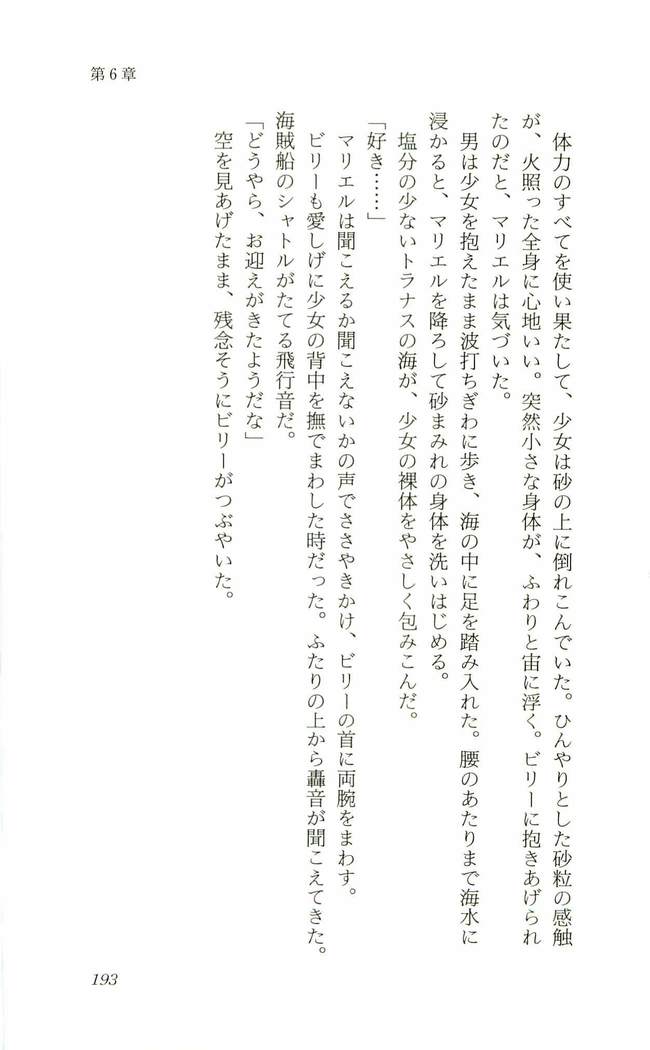 第6章
体力のすべてを使い果たして、少女は砂の上に倒れこんでいた。ひんやりとした砂粒の感触
が、火照った全身に心地いい。突然小さな身体が、ふわりと宙に浮く。ビリーに抱きあげられ
たのだと、マリエルは気づいた。
男は少女を抱えたまま波打ちぎわに歩き、海の中に足を踏み入れた。腰のあたりまで海水に
浸かると、マリエルを降ろして砂まみれの身体を洗いはじめる。
塩分の少ないトラナスの海が、少女の裸体をやさしく包みこんだ。
「好き……」
マリエルは聞こえるか聞こえないかの声でささやきかけ、ビリーの首に両腕をまわす。
ビリーも愛しげに少女の背中を撫でまわした時だった。ふたりの上から轟音が聞こえてきた。
海賊船のシャトルがたてる飛行音だ。
「どうやら、お迎えがきたようだな」
空を見あげたまま、残念そうにビリーがつぶやいた。
193